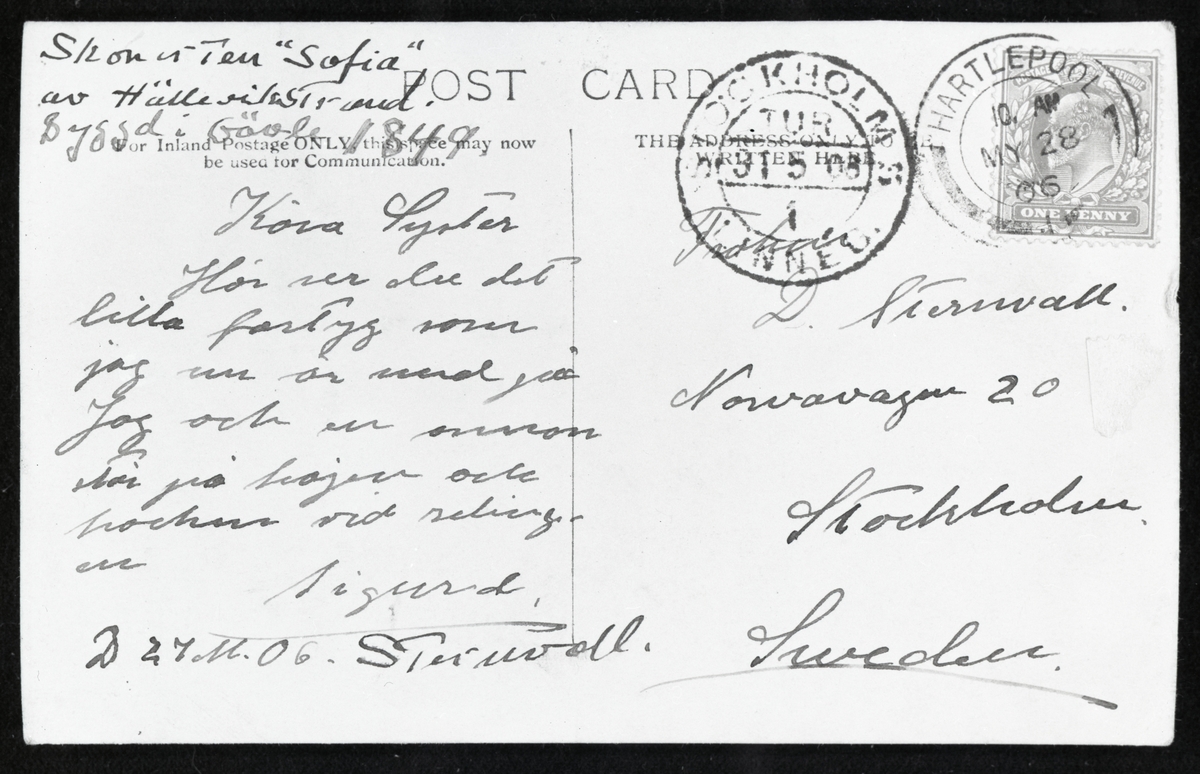 Skonerten "Sofia"
av Hällevikstrand.
Byggd i Gävle 1849.
POST CARD
For Inland Postage ONLY, this space may now
be used for Communication.
THE ADDRESS ONLY TO
WRITTEN HERE.
STOCKHOLMS
TUR
31 5 06
1
INNEG.
THARTLEPOOL
10. AM
MY 28
06
ONE PENNY
Kära Syster
Här ser du det
lilla fartyg som
jag nu är med på
Jag och en annan
står på
och
vid reling-
en
Sigurd.
D 27 M. 06. Sternvall.
Fröken
D. Sternvall.
Norravägen 20
Stockholm.
Sweden.